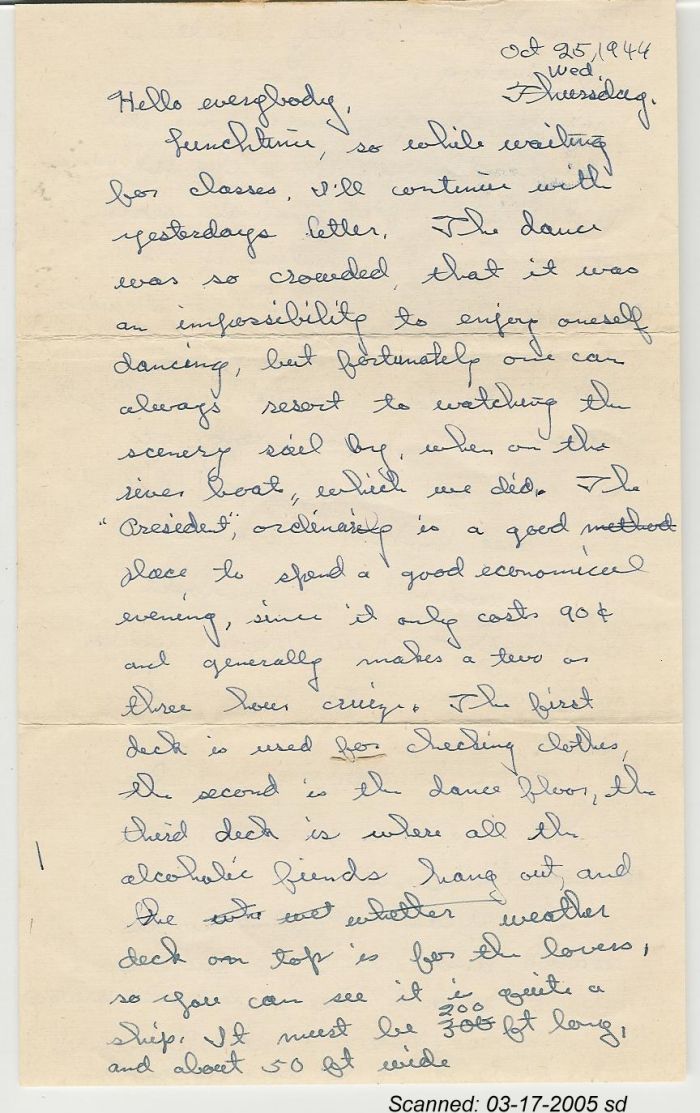 Oct 25, 1944
Wed.
Hello everybody, Thursday.
Lunchtime, so while waiting
for classes, I'll continue with
yesterdays letter. The dance
was so crowded, that it was
an impossibility to enjoy oneself
dancing, but fortunately one can
always resort to watching the
scenery sail by, when on the
river boat, which we did. The
"President", ordinarily is a good method
place to spend a good economical
evening, since it only costs 90¢
and generally makes a two or
three hour cruize. The first
deck is used for checking clothes,
the second is the dance floor, the
third deck is where all the
alcoholic fiends hang out, and
the whether weather
deck on top is for the lovers,
so you can see it is quite a
200
ship. It must be 300 ft long,
and about 50 ft wide
Scanned: 03-17-2005 sd